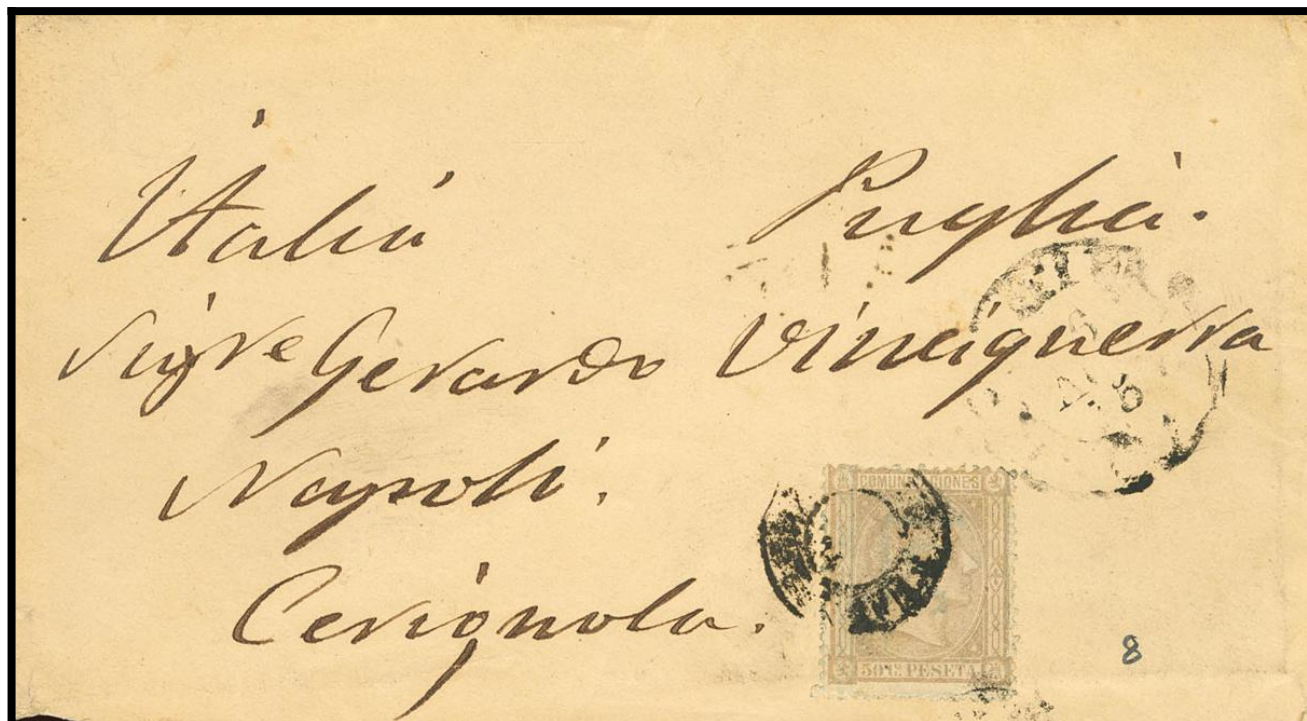 Italia Puglia.
Sigre Gerardo Vinciguerra
Napoli.
Cerignola.
COMUNICACIONES
50 Cs PESETA
8